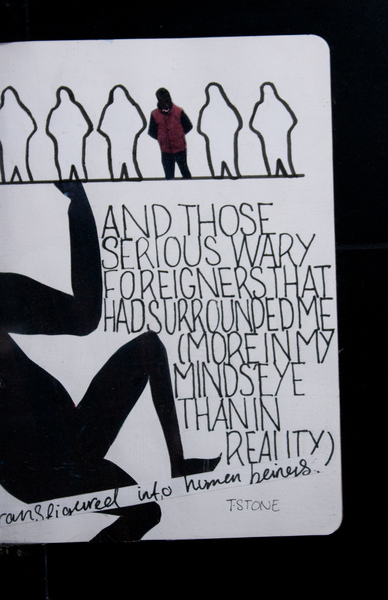 AND THOSE
SERIOUS WARY
FOREIGNERS THAT
HAD SURROUNDED ME
(MORE IN MY
MINDS EYE
THAN IN
REALITY)
into human beings.
T-STONE